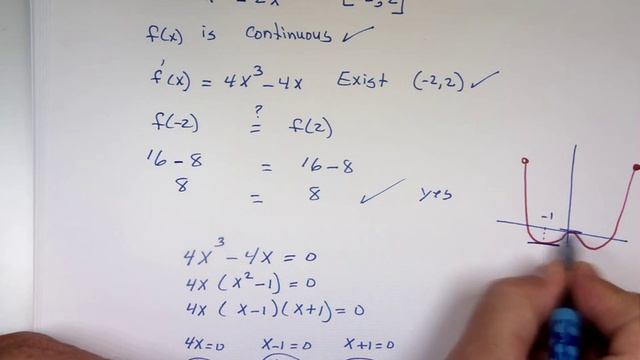 2x [-2,2]
f(x) is continuous ✓
f'(x) = 4x³ - 4x Exist (-2,2) ✓
f(-2) ?= f(2)
16 - 8 = 16 - 8
8 = 8 ✓ yes
-1
4x³ - 4x = 0
4x (x² - 1) = 0
4x (x-1)(x+1) = 0
4x=0 x-1=0 x+1=0